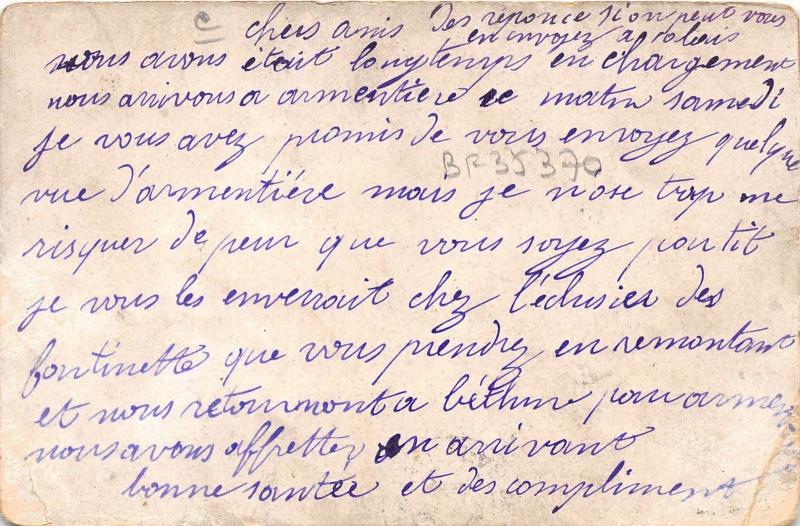 chers amis des réponce si on peut vous
en envoyez a
nous avons était longtemps en chargement
nous arrivons a armentière ce matin samedi
je vous avez promis de vous envoyez quelque
BF35370
vue d'armentière mais je nose trop me
risquer de peur que vous soyez partit
je vous les enverrait chez l'éclusier des
fontinette que vous prendrez en remontant
et nous retournont a béthune pour
nous avons affretter en arrivant
bonne santée et des compliment